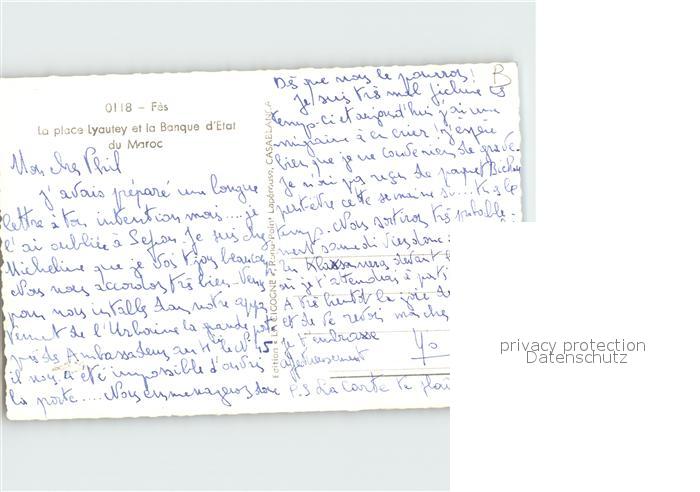 0118 - Fès
La place Lyautey et la Banque d'Etat
du Maroc
Mon cher Phil
j'avais préparé une longue
lettre à ton intention mais.... je
l'ai oubliée à Sefrou. Je suis chez
Micheline que je vois tjours beaucoup
Nous nous accordons très bien. Venus
pour nous installer dans notre appar
tement de l'Urbaine la grande
près des Ambassadeurs au
il nous a été impossible d'ouvrir
la porte.... Nous emménagerons donc
Edition "LA CIGOGNE", Rond-Point Lapérouse, CASABLANCA
Dès que nous le pourrons!
B
Je suis très mal fichue ces
temps-ci et aujourd'hui j'ai une
migraine à en crier! J'espère
bien que je ne couve rien de grave.
Je n'ai pas reçu de paquet
peut-être cette semaine
temps. Nous sortirons très probable-
ment samedi Viens donc
un devant
où je t'attendrai à partir
A très bientôt la joie de
et de te revoir
je t'embrasse
affectueusement
Yo
P.S La carte te plaît
privacy protection
Datenschutz